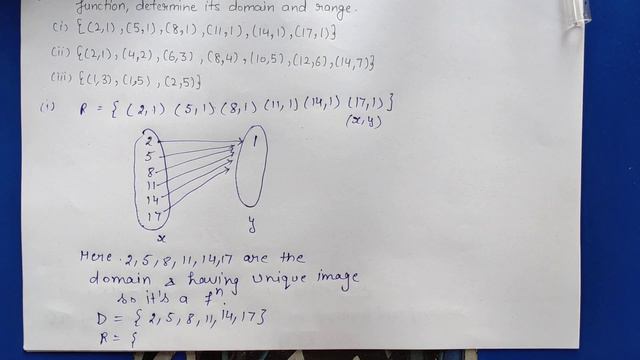 function, determine its domain and range.
(i) {(2,1), (5,1), (8,1), (11,1), (14,1), (17,1)}
(ii) {(2,1), (4,2), (6,3), (8,4), (10,5), (12,6), (14,7)}
(iii) {(1,3), (1,5), (2,5)}
(i) R = { (2,1) (5,1) (8,1) (11,1) (14,1) (17,1) }
(x,y)
2 1
5
8
11
14
17
x y
Here 2,5,8,11,14,17 are the
domain & having unique image
so it's a fⁿ.
D = { 2,5,8,11,14,17}
R = {